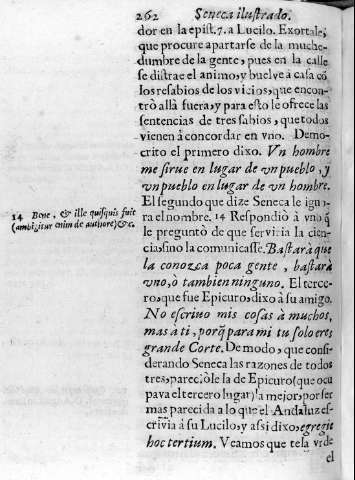 262 Seneca ilustrado.
dor en la epist. 7. a Lucilo. Exortale,
que procure apartarse de la muche-
dumbre de la gente, pues en la calle
se distrae el animo, y buelve à casa cõ
los resabios de los vicios, que encon-
trò allà fuera, y para esto le ofrece las
sentencias de tres sabios, que todos
vienen à concordar en vno. Demo-
crito el primero dixo. Vn hombre
me sirue en lugar de vn pueblo, y
vn pueblo en lugar de vn hombre.
El segundo que dize Seneca le igno-
ra el nombre. 14 Respondiò à vno q̃
le preguntò de que serviria la cien-
cia, sino la comunicasse. Bastarà que
la conozca poca gente, bastarà
vno, ò tambien ninguno. El terce-
ro, que fue Epicuro, dixo à su amigo.
No escriuo mis cosas à muchos,
mas à ti, porq̃ para mi tu solo eres
grande Corte. De modo, que consi-
derando Seneca las razones de todos
tres, pareciòle la de Epicuro (que ocu
pava el tercero lugar) la mejor, por ser
mas parecida a lo que el Andaluz es-
crivia à su Lucilo, y assi dixo, egregie
hoc tertium. Veamos que tela vrde
el
14 Bene, & ille quisquis fuit
(ambigitur enim de authore) &c.